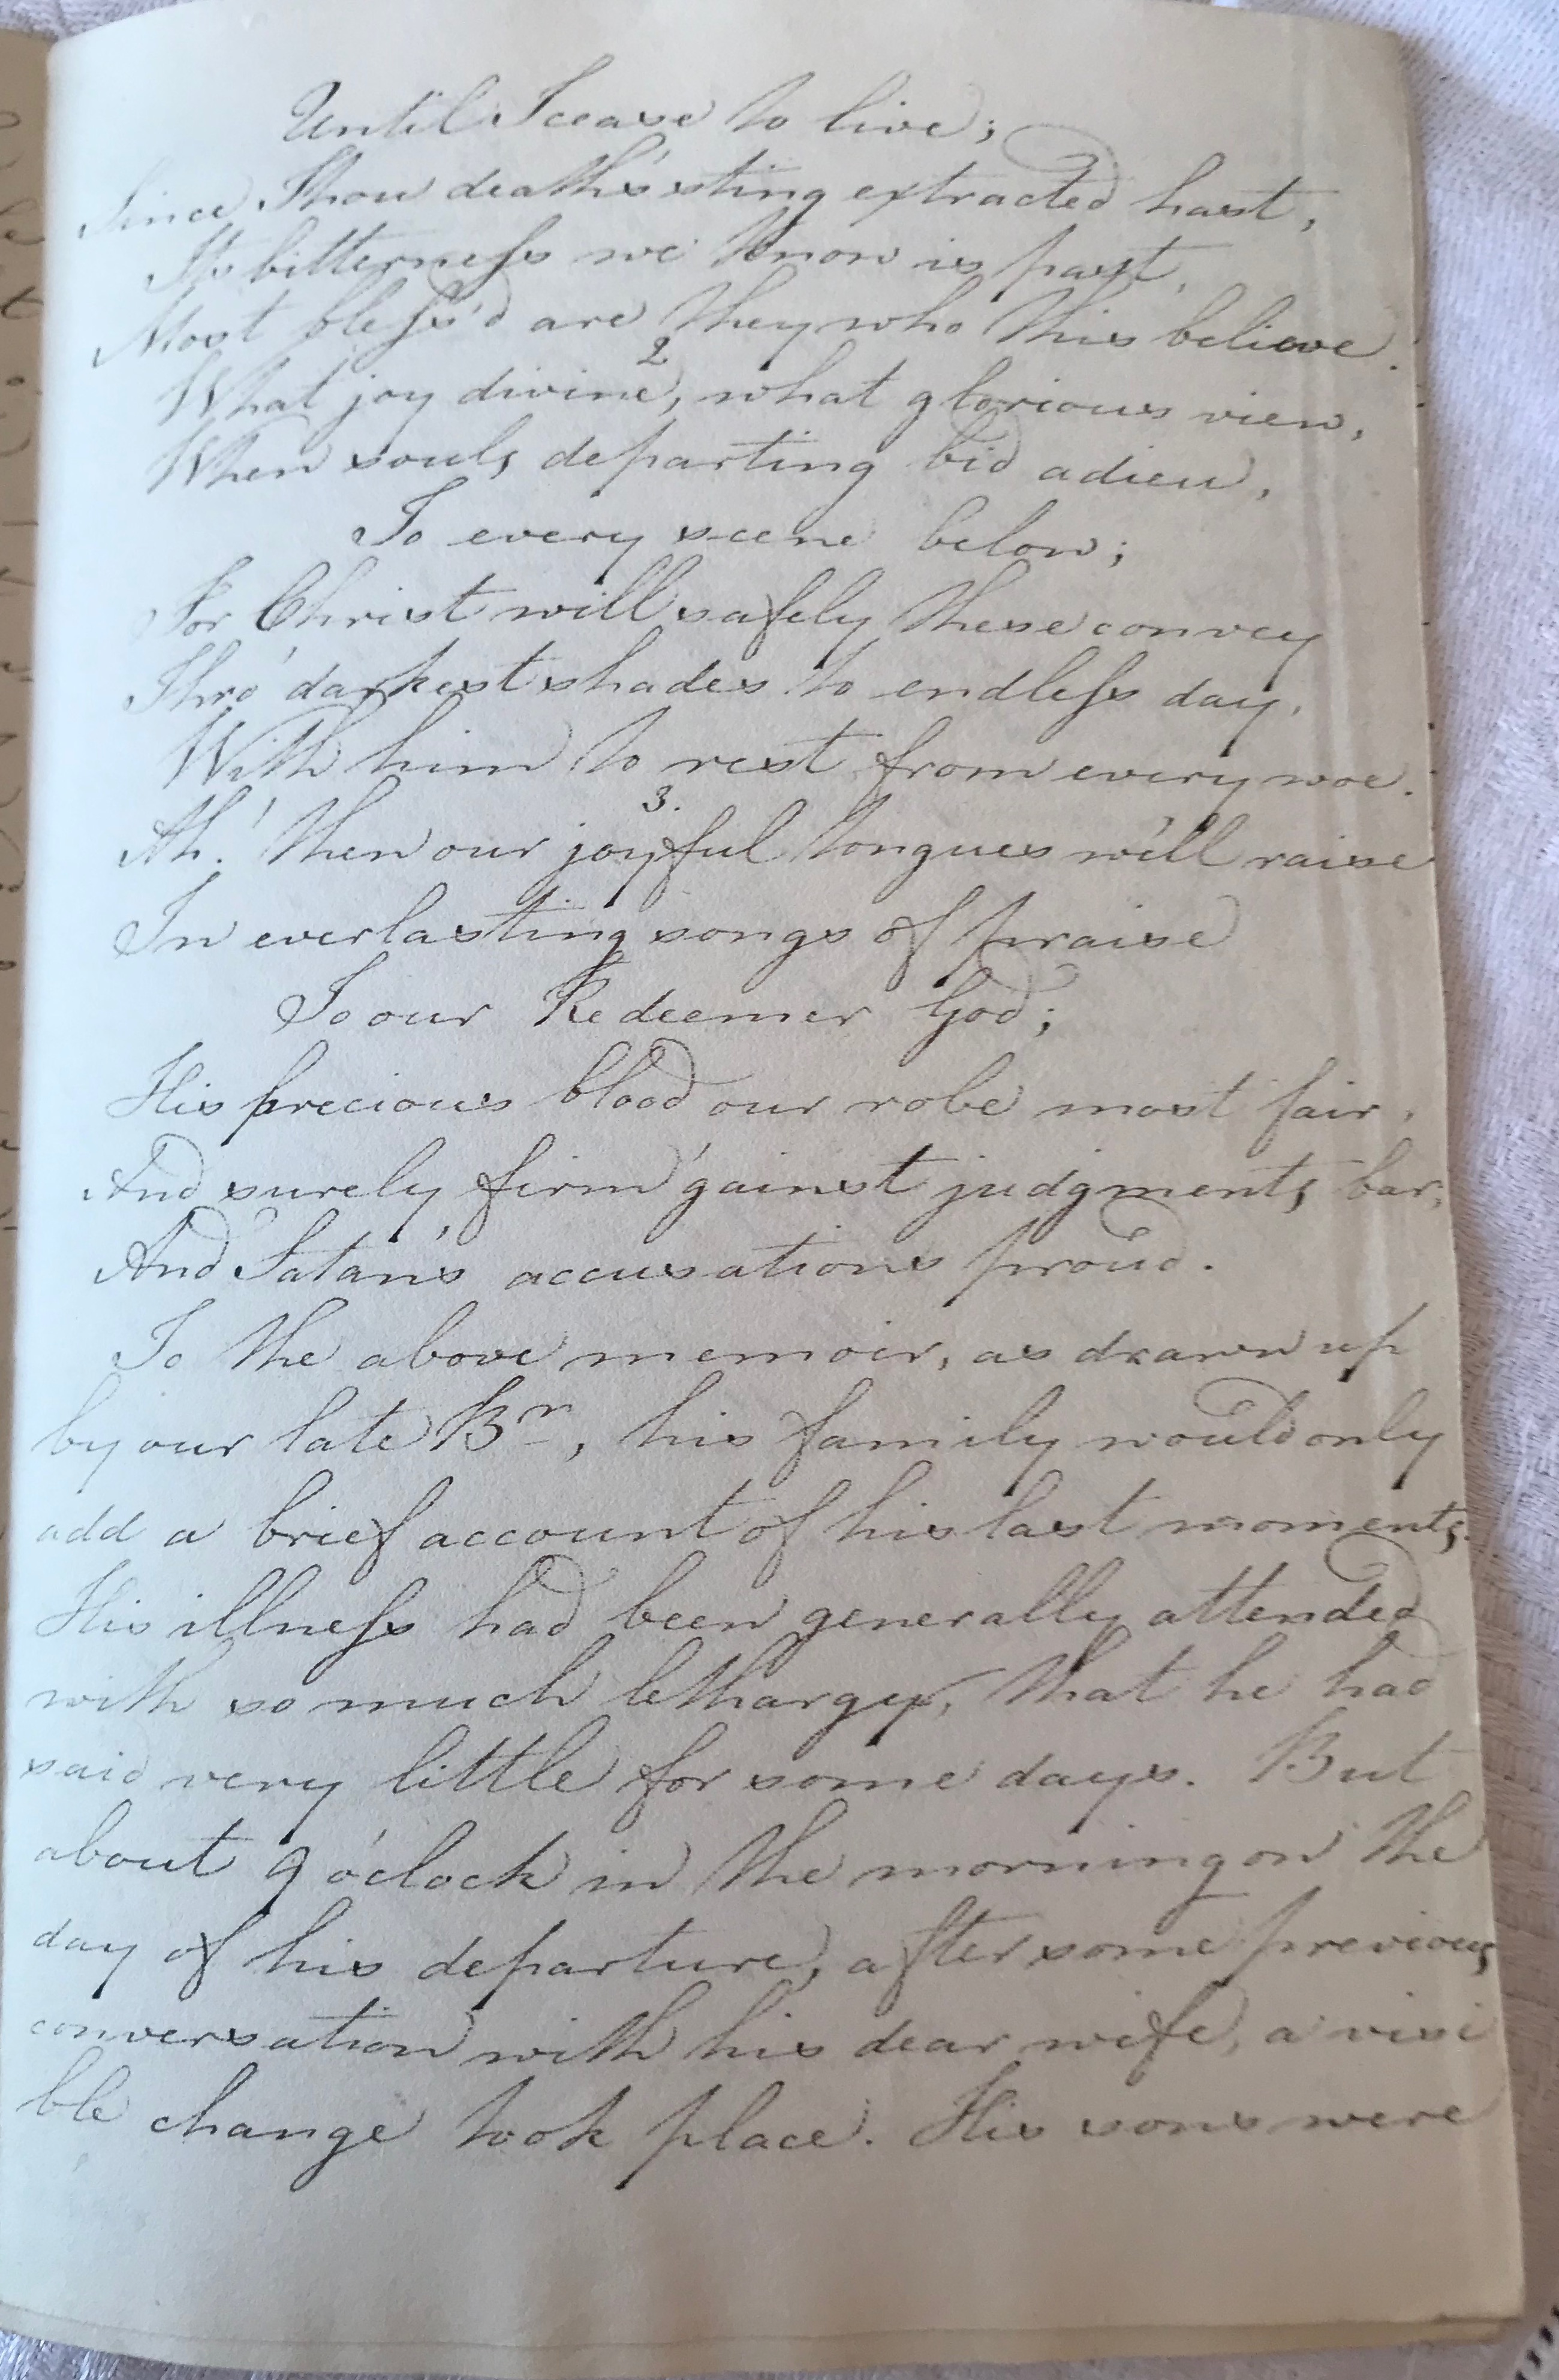 Until I cease to live;
Since Thou death's sting extracted hast,
Its bitterness we know is past,
Most bless'd are they who this believe.
2
What joy divine, what glorious view,
When souls departing bid adieu,
To every scene below;
For Christ will safely these convey
Thro' darkest shades to endless day,
With him to rest from every woe.
3.
Ah! then our joyful tongues we'll raise
In everlasting songs of praise
To our Redeemer God;
His precious blood our robe most fair,
And surely firm 'gainst judgments bar,
And Satan's accusations proud.
To the above memoir, as drawn up
by our late Br, his family would only
add a brief account of his last moments.
His illness had been generally attended
with so much lethargy, that he had
said very little for some days. But
about 9 o'clock in the morning on the
day of his departure, after some previous
conversation with his dear wife, a visi
ble change took place. His sons were